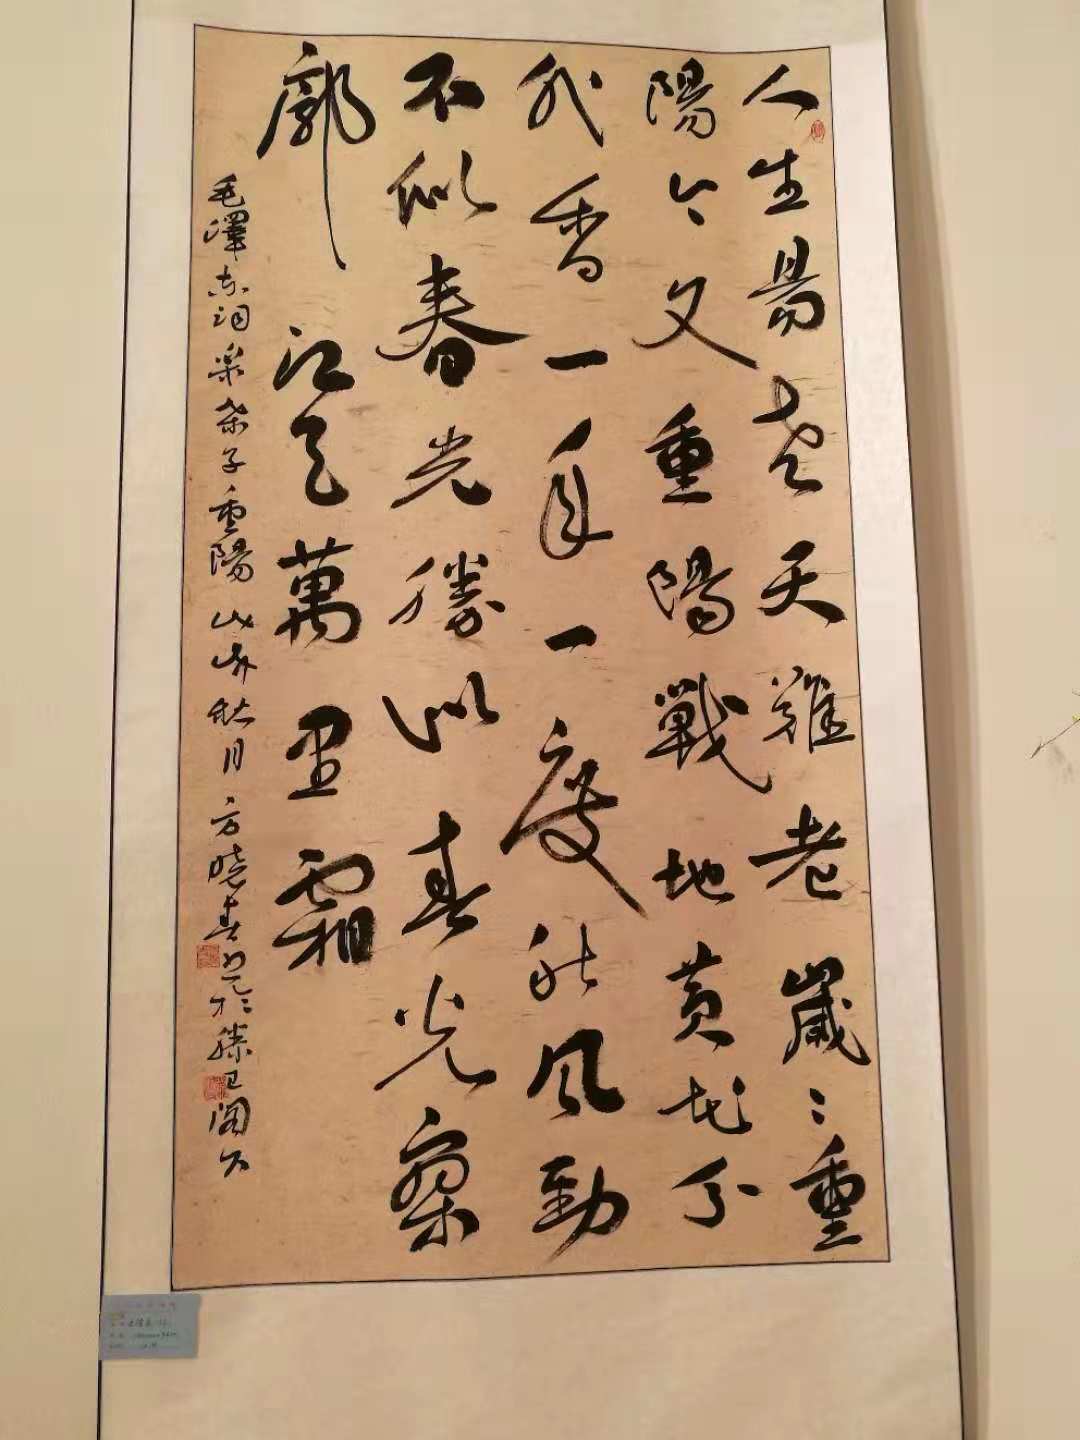 人生易老天難老歲々重
陽今又重陽戰地黃花分
外香一年一度秋風勁
不似春光勝似春光寥
廓江天萬里霜
毛澤东詞采桑子重陽秋月方曉春書於滕王閣下